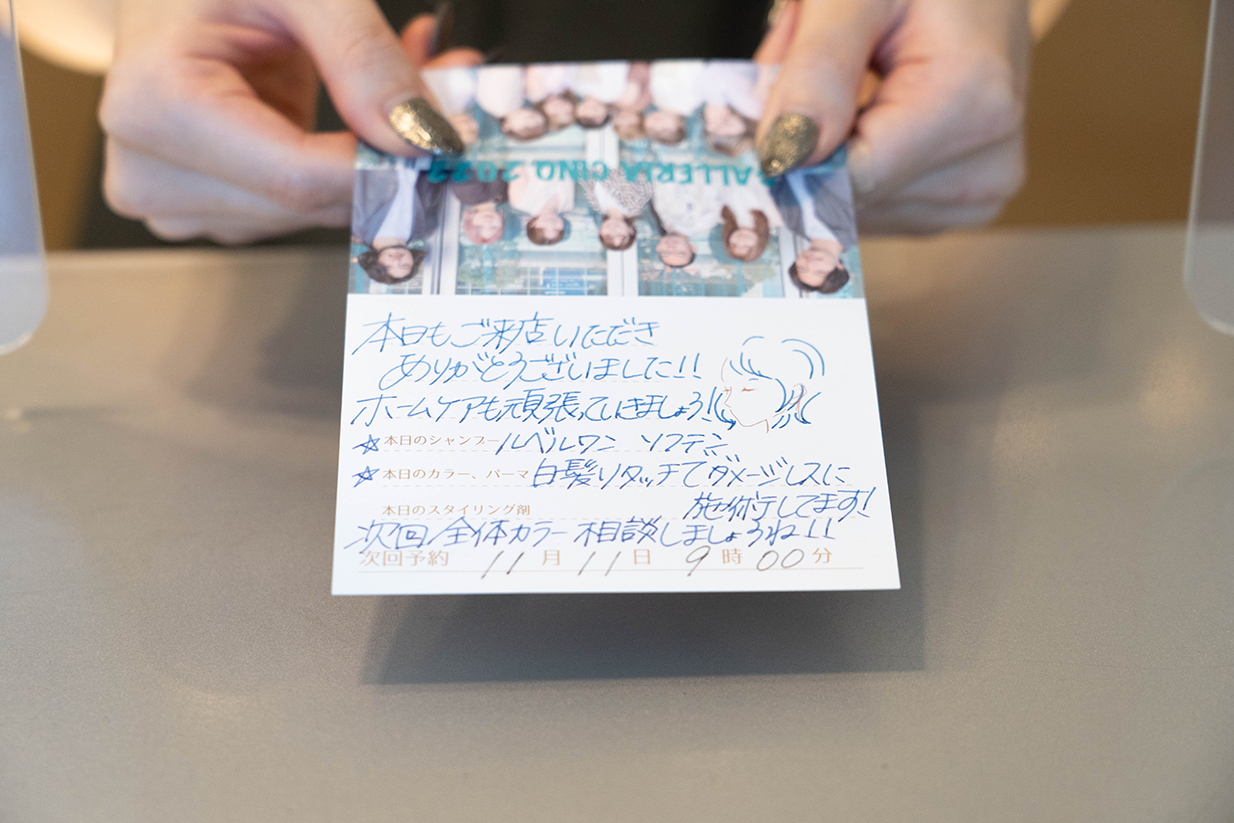 GALLERIA CINQ 2022
本日もご来店いただき
ありがとうございました!!
ホームケアも頑張っていきましょう!
☆本日のシャンプー ルベルワン ソフテン
☆本日のカラー、パーマ 白髪リタッチでダメージレスに
本日のスタイリング剤 施術してます!
次回/全体カラー相談しましょうね!!
次回予約 11月11日9時00分